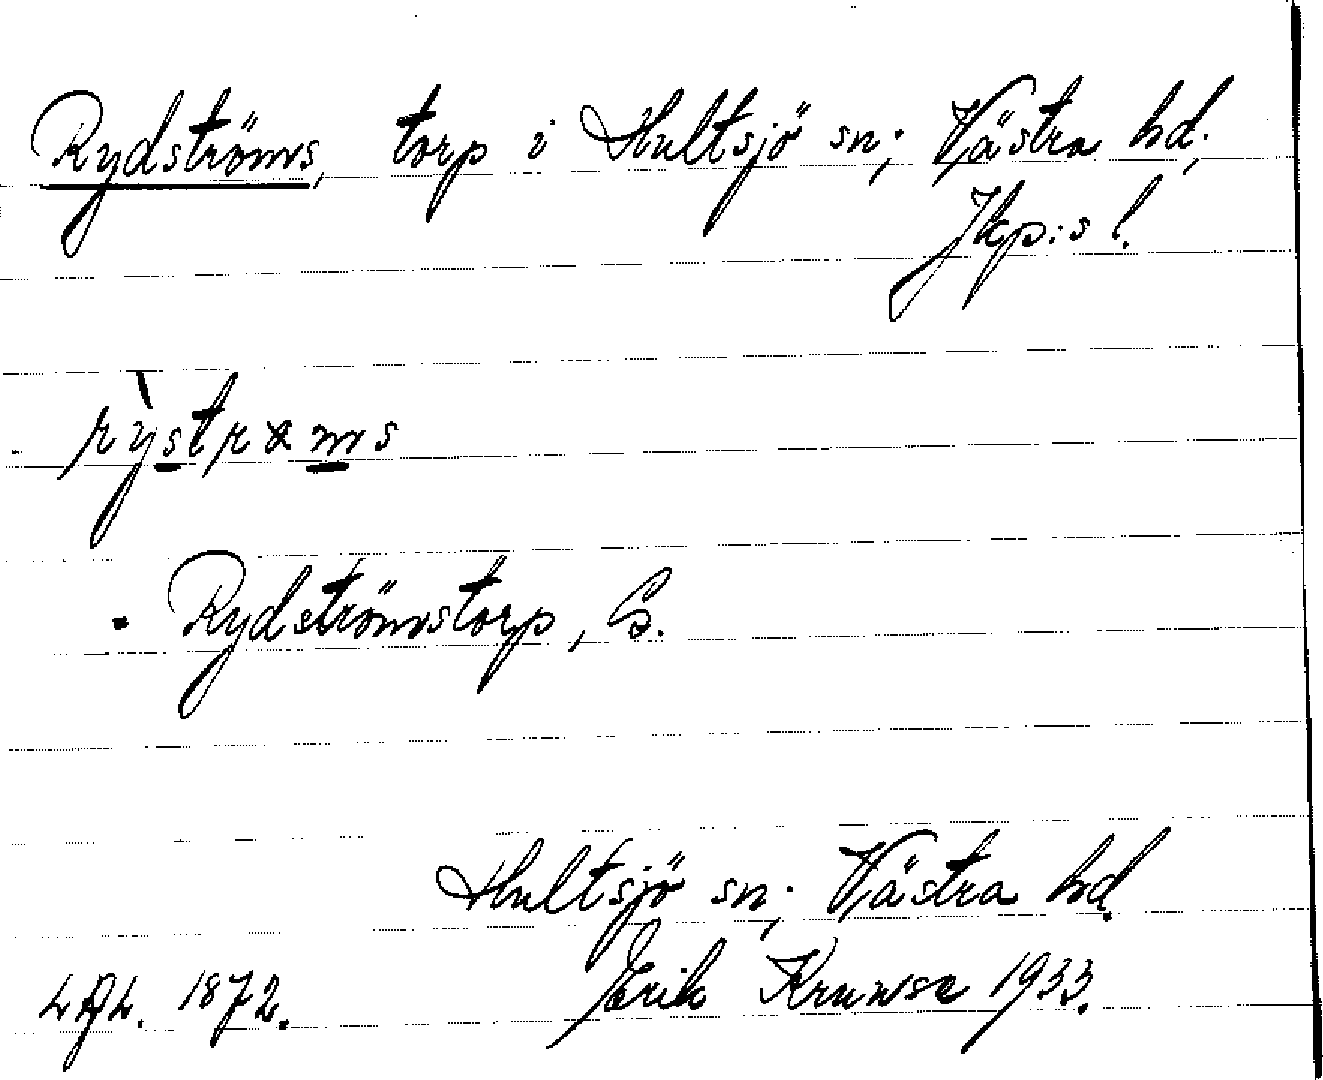 Rydströms, torp i Hultsjö sn; Västra hd;
Jkp:s l.
rỳstrøms
Rydströmstorp, G.
Hultsjö sn; Västra hd.
LAL. 1872. Erik Kruuse 1933.